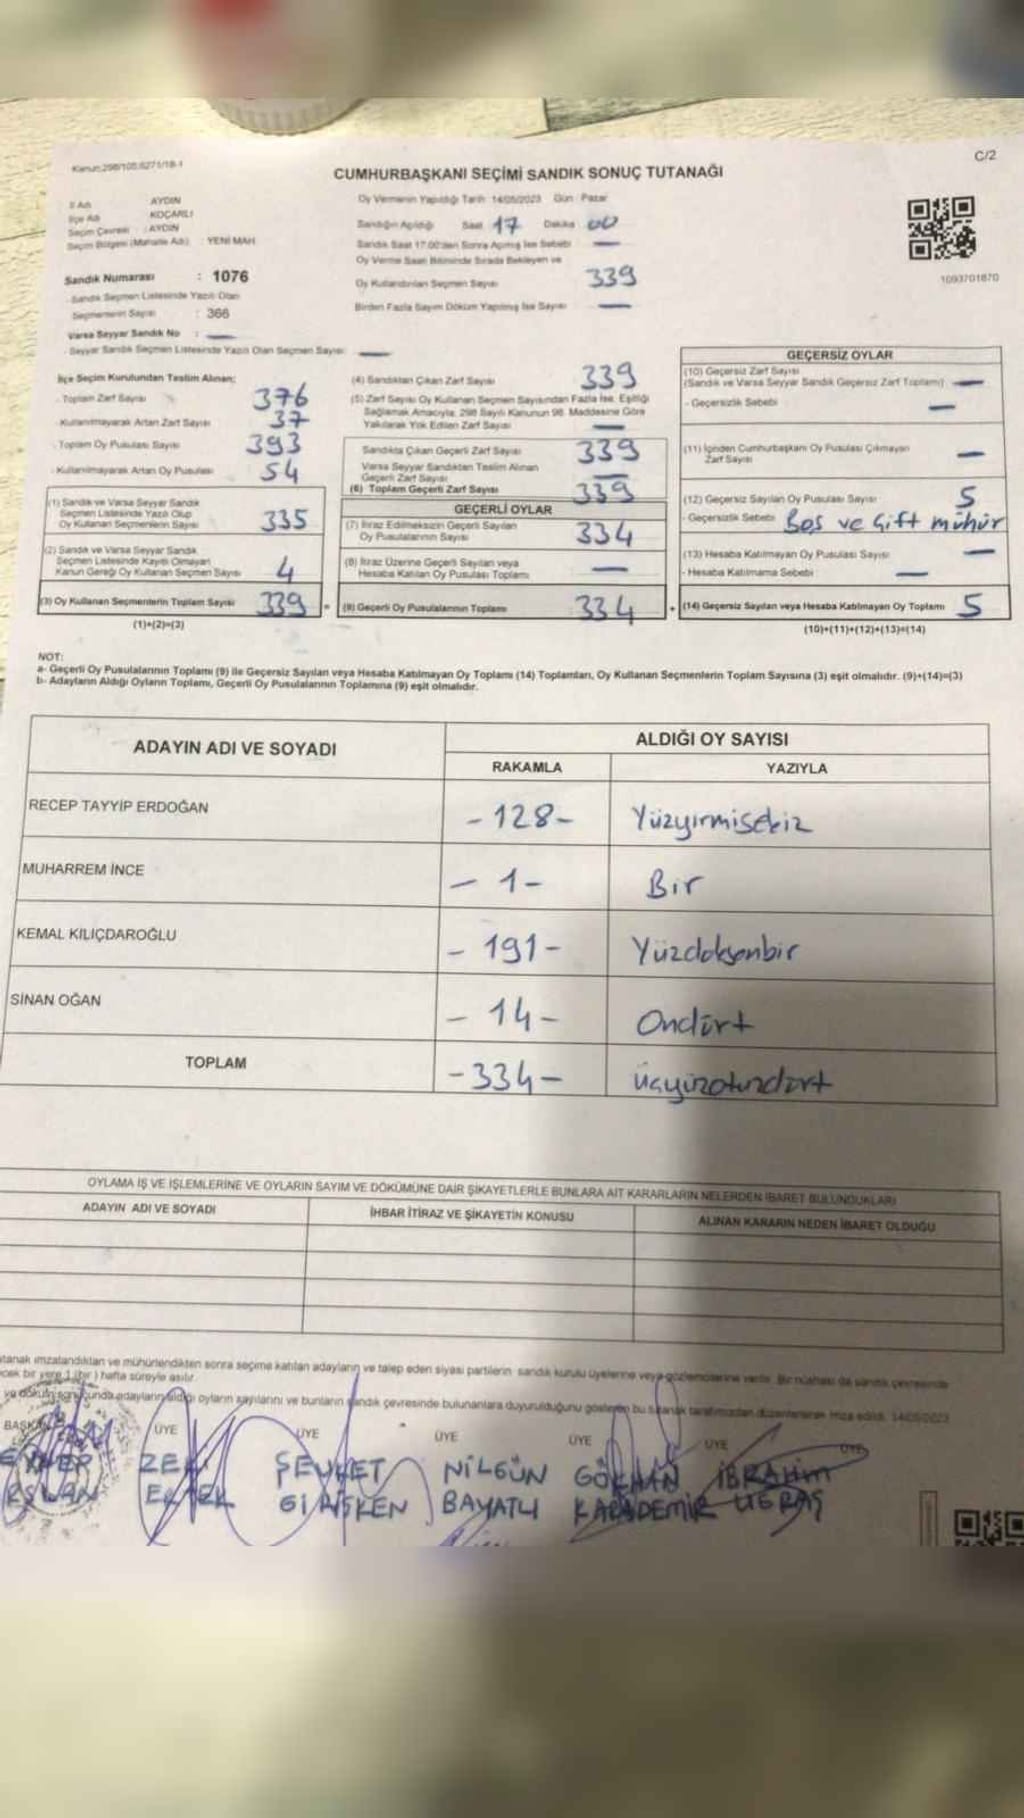 Kanun:298/105;6271/18-1
C/2
CUMHURBAŞKANI SEÇİMİ SANDIK SONUÇ TUTANAĞI
İl Adı AYDIN
İlçe Adı KOÇARLI
Seçim Çevresi : AYDIN
Seçim Bölgesi (Mahalle Adı) : YENİ MAH
Sandık Numarası : 1076
Sandık Seçmen Listesinde Yazılı Olan
Seçmenlerin Sayısı : 366
Varsa Seyyar Sandık No : —
- Seyyar Sandık Seçmen Listesinde Yazılı Olan Seçmen Sayısı: —
Oy Vermenin Yapıldığı Tarih : 14/05/2023 Gün : Pazar
Sandığın Açıldığı Saat 17 Dakika 00
Sandık Saat 17:00'den Sonra Açılmış İse Sebebi —
Oy Verme Saati Bitiminde Sırada Bekleyen ve
Oy Kullandırılan Seçmen Sayısı 339
Birden Fazla Sayım Döküm Yapılmış İse Sayısı —
1093701870
İlçe Seçim Kurulundan Teslim Alınan;
- Toplam Zarf Sayısı 376
- Kullanılmayarak Artan Zarf Sayısı 37
- Toplam Oy Pusulası Sayısı 393
- Kullanılmayarak Artan Oy Pusulası 54
(1) Sandık ve Varsa Seyyar Sandık
Seçmen Listesinde Yazılı Olup
Oy Kullanan Seçmenlerin Sayısı 335
(2) Sandık ve Varsa Seyyar Sandık
Seçmen Listesinde Kayıtlı Olmayan
Kanun Gereği Oy Kullanan Seçmen Sayısı 4
(3) Oy Kullanan Seçmenlerin Toplam Sayısı 339
(1)+(2)=(3)
(4) Sandıktan Çıkan Zarf Sayısı 339
(5) Zarf Sayısı Oy Kullanan Seçmen Sayısından Fazla İse, Eşitliği
Sağlamak Amacıyla, 298 Sayılı Kanunun 98. Maddesine Göre
Yakılarak Yok Edilen Zarf Sayısı —
Sandıkta Çıkan Geçerli Zarf Sayısı 339
Varsa Seyyar Sandıktan Teslim Alınan
Geçerli Zarf Sayısı —
(6) Toplam Geçerli Zarf Sayısı 339
GEÇERLİ OYLAR
(7) İtiraz Edilmeksizin Geçerli Sayılan
Oy Pusulalarının Sayısı 334
(8) İtiraz Üzerine Geçerli Sayılan veya
Hesaba Katılan Oy Pusulası Toplamı —
(9) Geçerli Oy Pusulalarının Toplamı 334
GEÇERSİZ OYLAR
(10) Geçersiz Zarf Sayısı
(Sandık ve Varsa Seyyar Sandık Geçersiz Zarf Toplamı) —
- Geçersizlik Sebebi —
(11) İçinden Cumhurbaşkanı Oy Pusulası Çıkmayan
Zarf Sayısı —
(12) Geçersiz Sayılan Oy Pusulası Sayısı 5
- Geçersizlik Sebebi Boş ve Çift mühür
(13) Hesaba Katılmayan Oy Pusulası Sayısı —
- Hesaba Katılmama Sebebi —
(14) Geçersiz Sayılan veya Hesaba Katılmayan Oy Toplamı 5
(10)+(11)+(12)+(13)=(14)
NOT:
a- Geçerli Oy Pusulalarının Toplamı (9) ile Geçersiz Sayılan veya Hesaba Katılmayan Oy Toplamı (14) Toplamları, Oy Kullanan Seçmenlerin Toplam Sayısına (3) eşit olmalıdır. (9)+(14)=(3)
b- Adayların Aldığı Oyların Toplamı, Geçerli Oy Pusulalarının Toplamına (9) eşit olmalıdır.
ADAYIN ADI VE SOYADI
ALDIĞI OY SAYISI
RAKAMLA YAZIYLA
RECEP TAYYİP ERDOĞAN -128- Yüzyirmisekiz
MUHARREM İNCE -1- Bir
KEMAL KILIÇDAROĞLU -191- Yüzdoksanbir
SİNAN OĞAN -14- Ondört
TOPLAM -334- üçyüzotuzdört
OYLAMA İŞ VE İŞLEMLERİNE VE OYLARIN SAYIM VE DÖKÜMÜNE DAİR ŞİKAYETLERLE BUNLARA AİT KARARLARIN NELERDEN İBARET BULUNDUKLARI
ADAYIN ADI VE SOYADI İHBAR İTİRAZ VE ŞİKAYETİN KONUSU ALINAN KARARIN NEDEN İBARET OLDUĞU
tanak imzalandıktan ve mühürlendikten sonra seçime katılan adayların ve talep eden siyasi partilerin sandık kurulu üyelerine veya gözlemcilerine verilir. Bir nüshası da sandık çevresinde
cek bir yere 1 (bir) hafta süreyle asılır.
ve döküm sonucunda adayların aldığı oyların sayılarını ve bunların sandık çevresinde bulunanlara duyurulduğunu gösteren bu tutanak tarafımızdan düzenlenerek imza edildi. 14/05/2023
BAŞKAN ÜYE ÜYE ÜYE ÜYE ÜYE ÜYE
ŞEVKET NİLGÜN GÖKHAN İBRAHİM
BAYATLI KARADEMİR UĞRAŞ